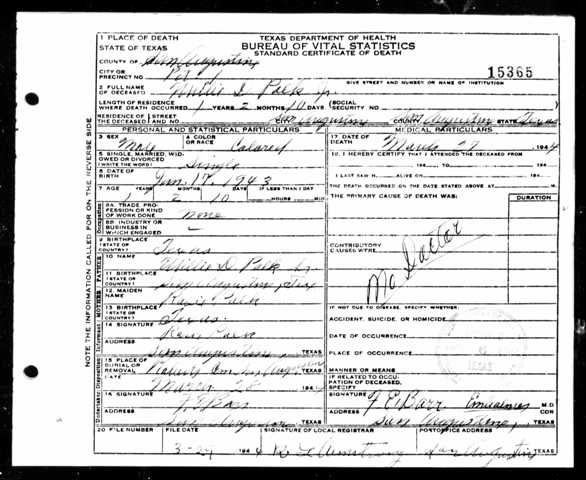 1 PLACE OF DEATH
STATE OF TEXAS
TEXAS DEPARTMENT OF HEALTH
BUREAU OF VITAL STATISTICS
STANDARD CERTIFICATE OF DEATH
COUNTY OF San Augustine
CITY OR PRECINCT NO.
15365
GIVE STREET AND NUMBER OR NAME OF INSTITUTION
2 FULL NAME OF DECEASED Willie D. Jr.
LENGTH OF RESIDENCE WHERE DEATH OCCURRED 1 YEARS 2 MONTHS 10 DAYS (SOCIAL SECURITY NO.
RESIDENCE OF THE DECEASED STREET AND NO. CITY Augustine COUNTY Augustine STATE Texas
PERSONAL AND STATISTICAL PARTICULARS
MEDICAL PARTICULARS
3 SEX Male 4 COLOR OR RACE Colored
17 DATE OF DEATH March 27 1944
5 SINGLE, MARRIED, WIDOWED OR DIVORCED (WRITE THE WORD) Single
18. I HEREBY CERTIFY THAT I ATTENDED THE DECEASED FROM
194 TO 194
6 DATE OF BIRTH Jan. 17, 1943
I LAST SAW H ALIVE ON 194
7 AGE YEARS 1 MONTHS 2 DAYS 10 HOURS MIN
THE DEATH OCCURRED ON THE DATE STATED ABOVE AT M.
THE PRIMARY CAUSE OF DEATH WAS:
DURATION
8A. TRADE, PROFESSION OR KIND OF WORK DONE none
8B. INDUSTRY OR BUSINESS IN WHICH ENGAGED
9 BIRTHPLACE (STATE OR COUNTRY) Texas
No Doctor
CONTRIBUTORY CAUSES WERE:
10 NAME Willie D.
11 BIRTHPLACE (STATE OR COUNTRY) San Augustine, Tex
12 MAIDEN NAME
13 BIRTHPLACE (STATE OR COUNTRY) Texas
IF NOT DUE TO DISEASE, SPECIFY WHETHER:
ACCIDENT, SUICIDE OR HOMICIDE
14 SIGNATURE
DATE OF OCCURRENCE
ADDRESS San Augustine, TEXAS
PLACE OF OCCURRENCE
15 PLACE OF BURIAL OR REMOVAL
DATE March 28 1944
MANNER OR MEANS
IF RELATED TO OCCUPATION OF DECEASED, SPECIFY
16 SIGNATURE
SIGNATURE F E Barr M.D.
ADDRESS San Augustine TEXAS
San Augustine, TEXAS
20 FILE NUMBER
FILE DATE 3-29 1944
SIGNATURE OF LOCAL REGISTRAR Armstrong
POSTOFFICE ADDRESS San Augustine TEXAS
NOTE THE INFORMATION CALLED FOR ON THE REVERSE SIDE.